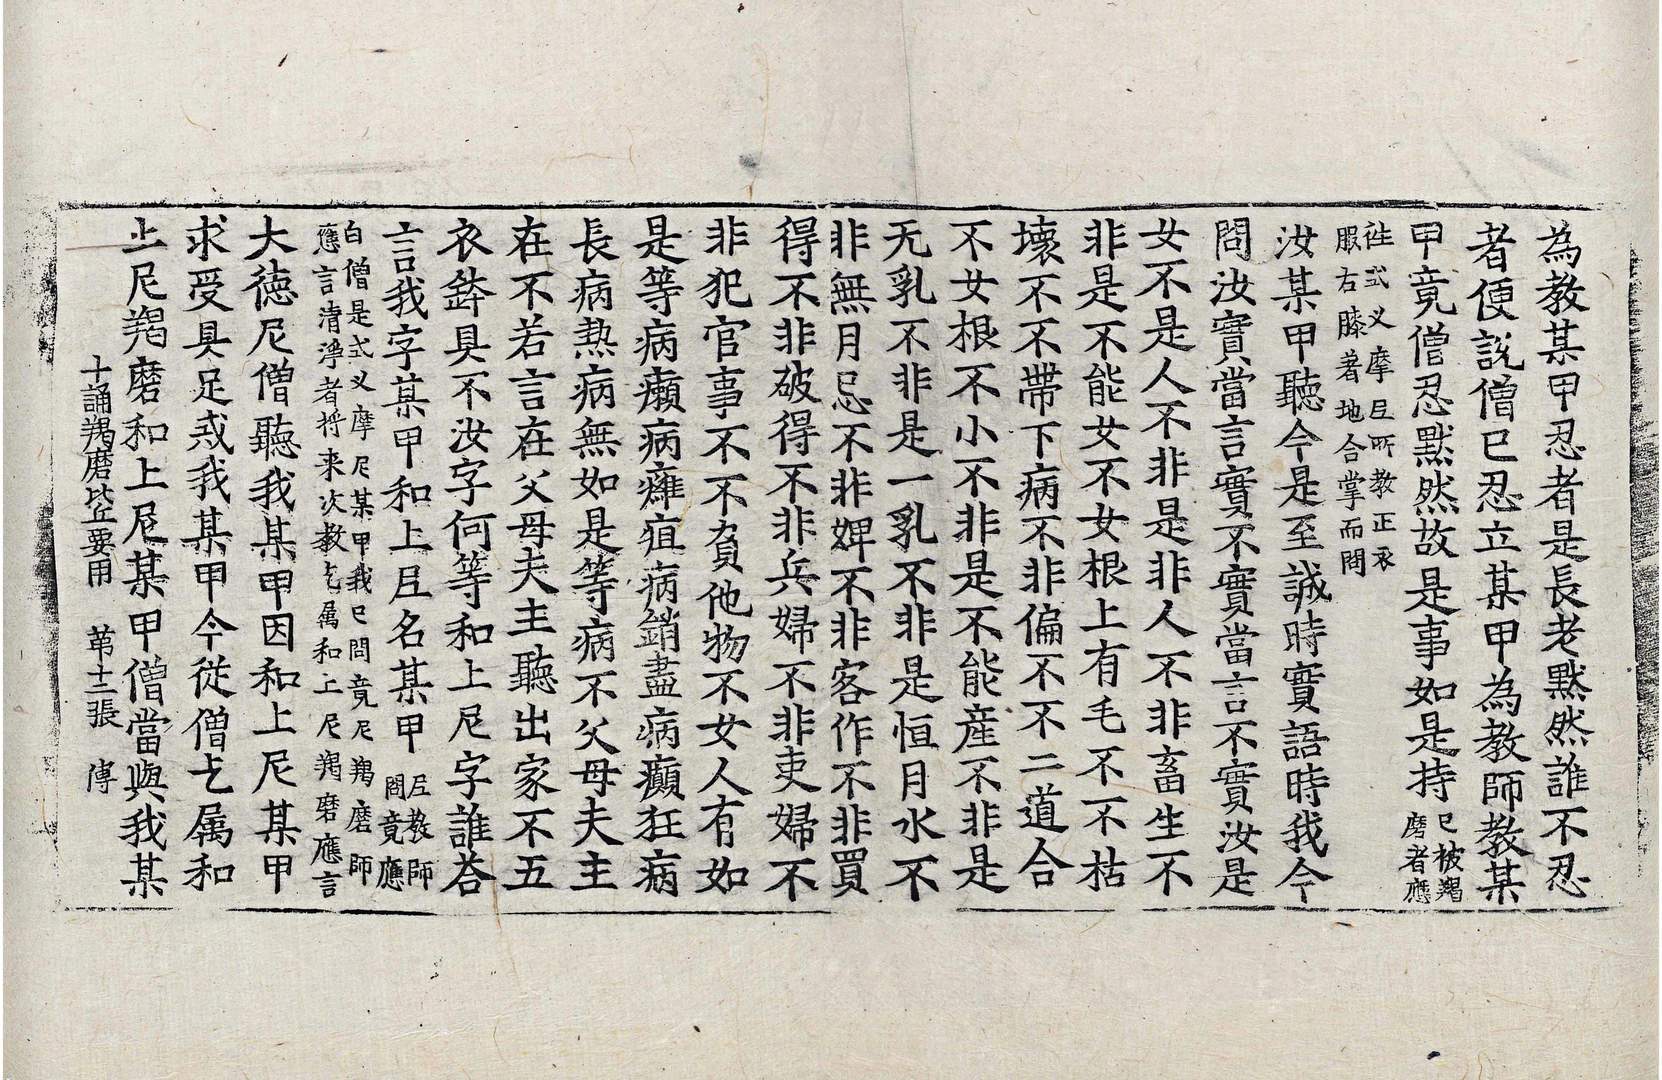 為教某甲忍者是長老黙然誰不忍
者便說僧已忍立某甲為教師教某
甲竟僧忍黙然故是事如是持已被羯磨者應
徃式义摩尼所教正衣服右膝著地合掌而問
汝某甲聽今是至誠時實語時我今
問汝實當言實不實當言不實汝是
女不是人不非是非人不非畜生不
非是不能女不女根上有毛不不枯
壞不不帶下病不非偏不不二道合
不女根不小不非是不能産不非是
无乳不非是一乳不非是恒月水不
非無月忌不非婢不非客作不非買
得不非破得不非兵婦不非吏婦不
非犯官事不不負他物不女人有如
是等病癩病癰疽病銷盡病癲狂病
長病熱病無如是等病不父母夫主
在不若言在父母夫主聽出家不五
衣鉢具不汝字何等和上尼字誰荅
言我字某甲和上尼名某甲尼教師問竟應
白僧是式义摩尼某甲我已問竟尼羯磨師應言清淨者将来次教乞属和上尼羯磨應言
大徳尼僧聽我某甲因和上尼某甲
求受具足戒我某甲今従僧乞属和
上尼羯磨和上尼某甲僧當與我某
十誦羯磨比丘要用　苐十二張　傅